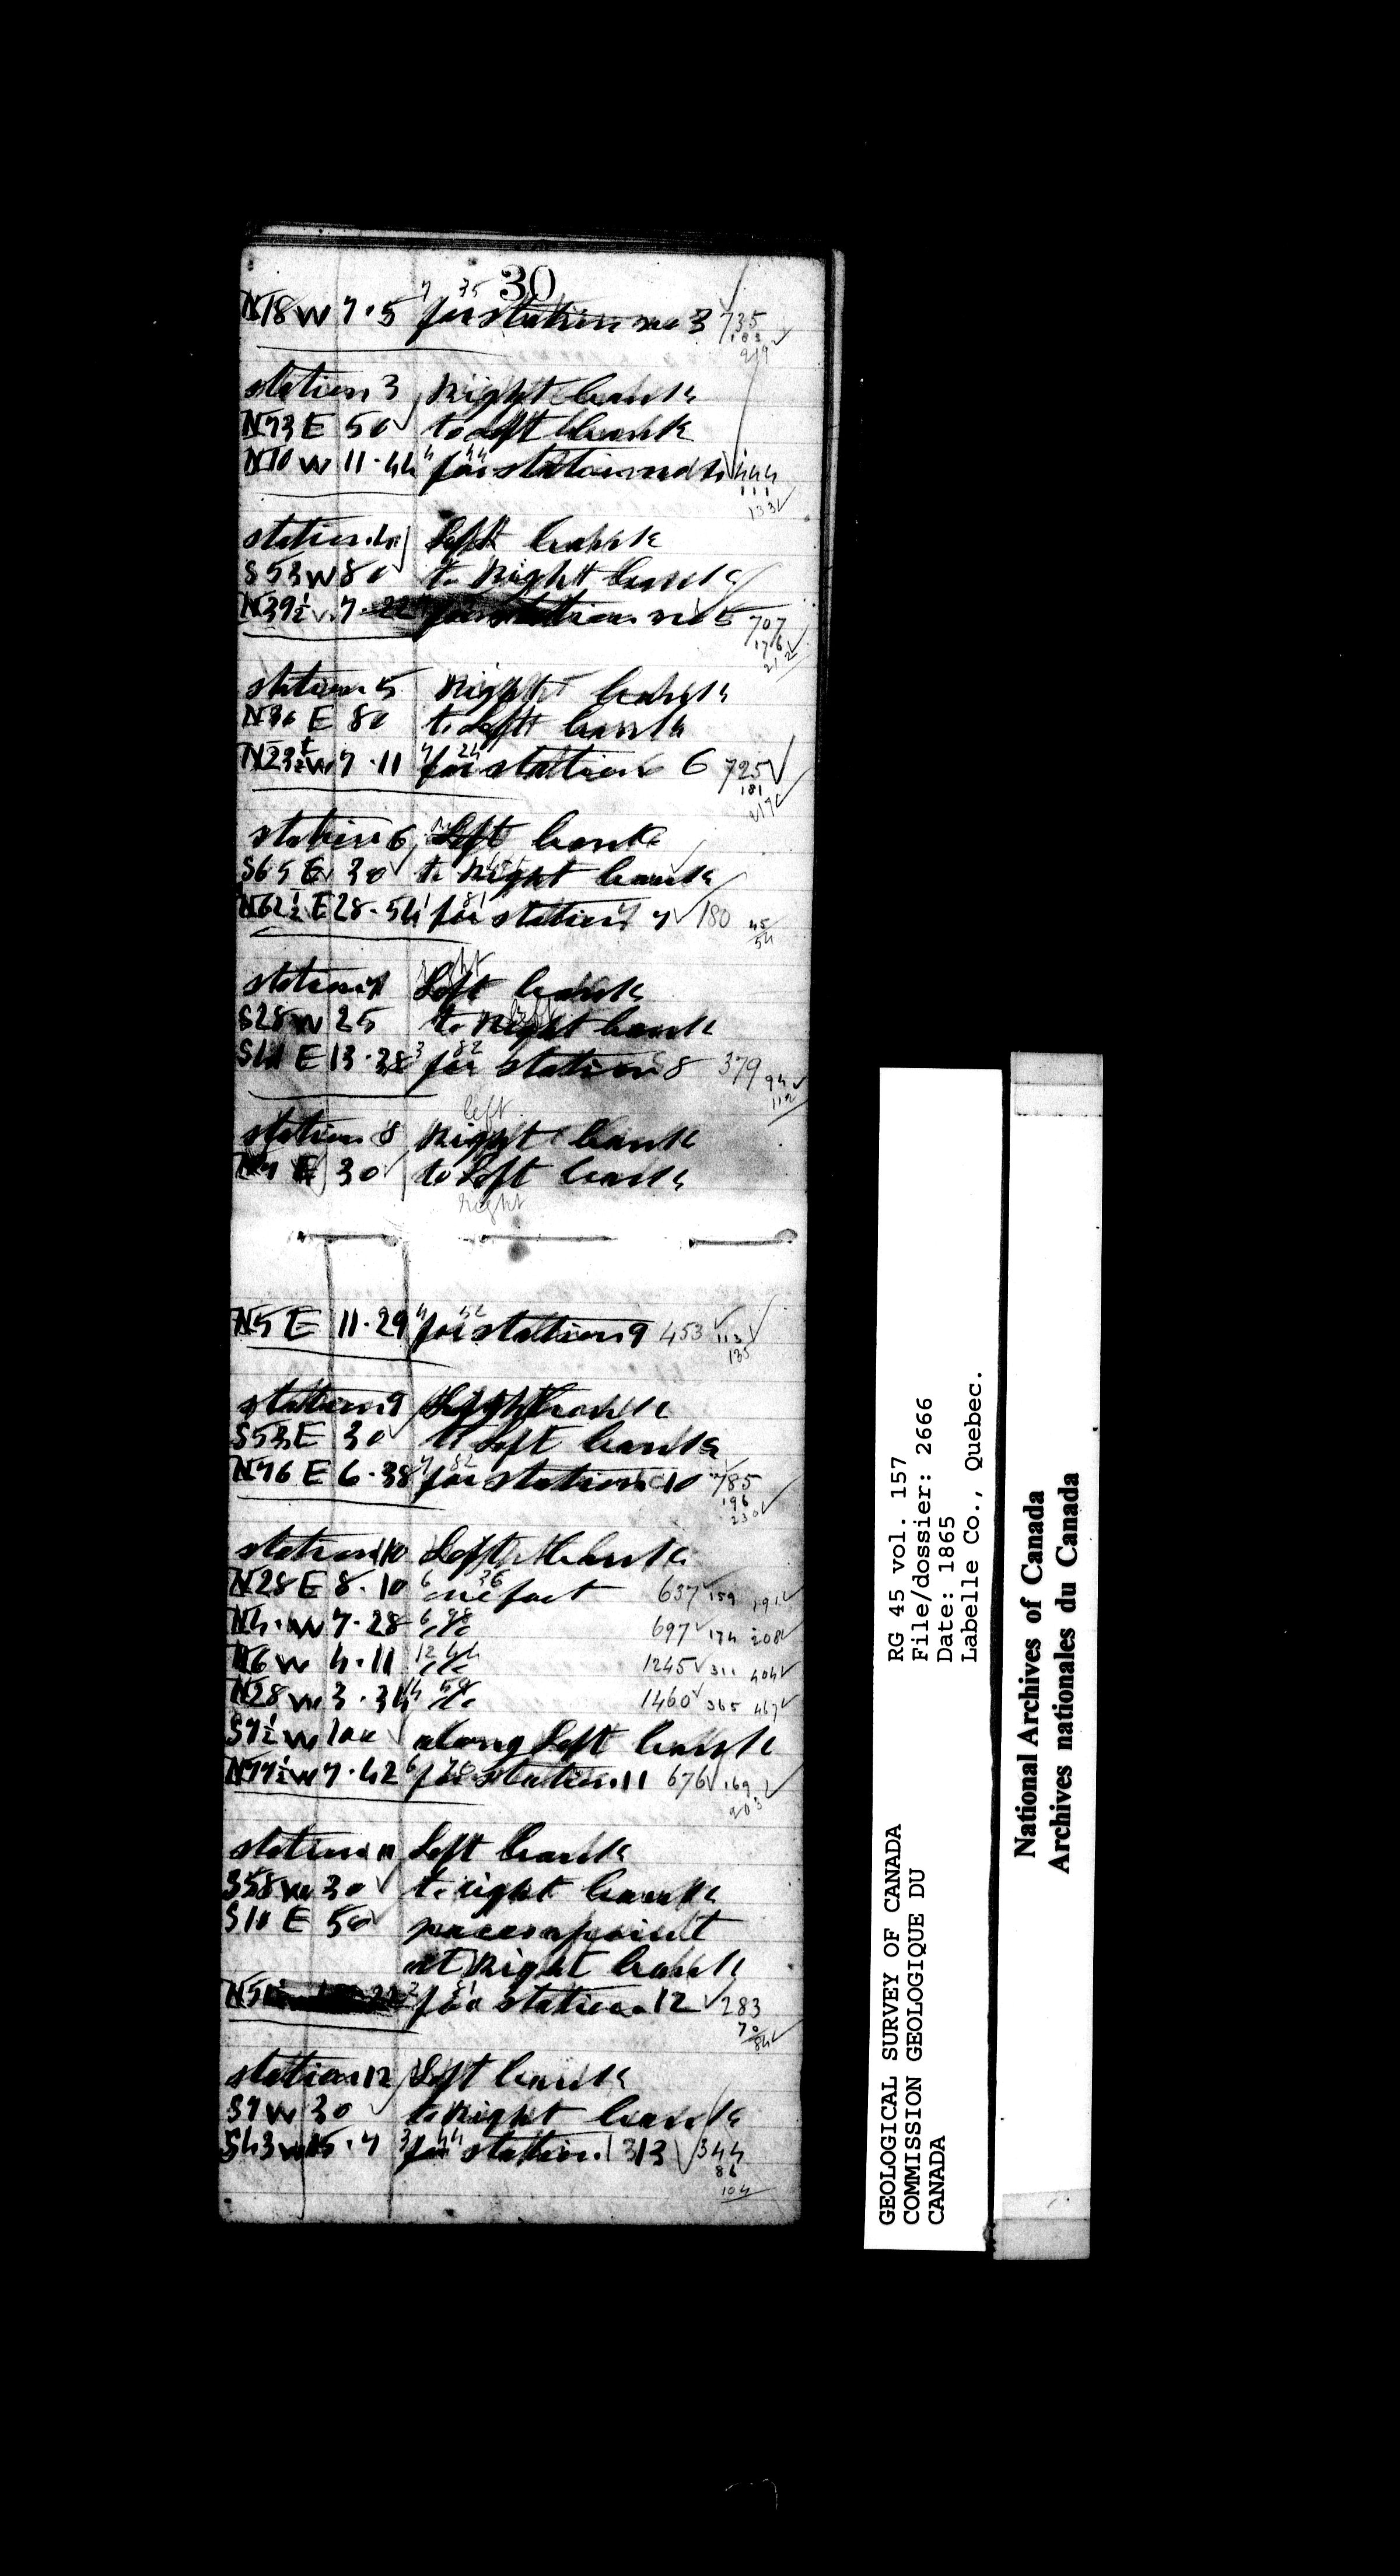 30
N18W 7·5 7 35 for station no 3 735
183
219
station 3 Right bank
N73E 50 to Left bank
N10W 11·44 4 44 for station no 4 444
111
133
station 4 Left bank
S53W 80 to Right bank
N39½W 7·22 for station no 5 707
176
212
station 5 Right bank
N30E 80 to Left bank
N23½W 7·11 7 24 for station 6 725
181
217
station 6 Left bank
S65E 30 to Right bank
N62½E 28·54 1 81 for station 7 180 45
54
right
station 7 Left bank
S28W 25 to Right bank
S11E 13·38 3 82 for station 8 379 94
112
left
station 8 Right bank
E 30 to Left bank
right
N5E 11·29 4 52 for station 9 453 113
135
station 9 bank
S53E 30 to Left bank
N76E 6·38 7 82 for station 10 785
196
230
station 10 Left bank
N28E 8·10 6 36 one foot 637 159 191
N4W 7·28 6 98 do 697 174 208
N6W 4·11 12 44 do 1245 311 404
N28W 3·34 14 59 do 1460 365 467
S7½W 100 along Left bank
N77½W 7·42 6 78 for station 11 676 169
203
station 11 Left bank
S58W 30 to right bank
S10E 50 point
at Right bank
for station 12 283
70
84
station 12 Left bank
S7W 30 to Right bank
S43W 15·7 3 44 for station 13 344
86
104
GEOLOGICAL SURVEY OF CANADA
COMMISSION GEOLOGIQUE DU
CANADA
RG 45 vol. 157
File/dossier: 2666
Date: 1865
Labelle Co., Quebec.
National Archives of Canada
Archives nationales du Canada